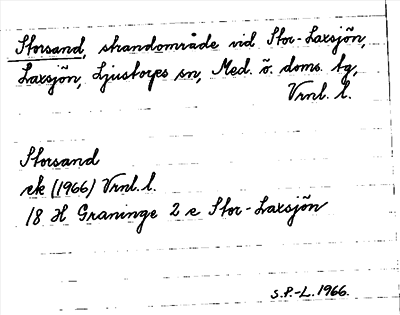 Storsand, strandområde vid Stor-Laxsjön,
Laxsjön, Ljustorps sn, Med. ö. doms. tg,
Vrnl. l.
Storsand
ek (1966) Vrnl. l.
18 H Graninge 2 e Stor-Laxsjön
S.P.-L. 1966.